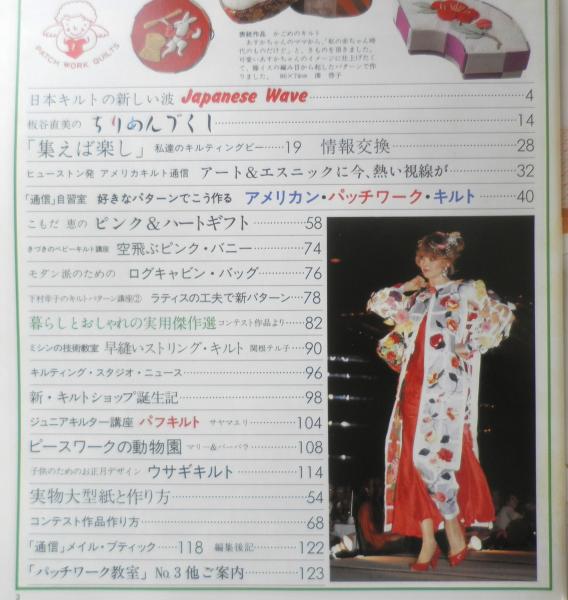 PATCH WORK QUILTS
表紙作品 かごめのキルト
あすかちゃんのママから、「私の赤ちゃん時
代のものだけど」と、きものを頂きました。
可愛いあすかちゃんのイメージに仕上げたく
て、藤イスの編み目から起したパターンで作
りました。 86×74cm
日本キルトの新しい波 Japanese Wave 4
板谷直美の ちりめんづくし 14
「集えば楽し」 私達のキルティングビー 19 情報交換 28
ヒューストン発 アメリカキルト通信 アート&エスニックに今、熱い視線が 32
「通信」自習室 好きなパターンでこう作る アメリカン・パッチワーク・キルト 40
こもだ 恵の ピンク&ハートギフト 58
きづきのベビーキルト講座 空飛ぶピンク・バニー 74
モダン派のための ログキャビン・バッグ 76
下村幸子のキルトパターン講座② ラティスの工夫で新パターン 78
暮らしとおしゃれの実用傑作選 コンテスト作品より 82
ミシンの技術教室 早縫いストリング・キルト 関根テル子 90
キルティング・スタジオ・ニュース 96
新・キルトショップ誕生記 98
ジュニアキルター講座 パフキルト サヤマエリ 104
ピースワークの動物園 マリー&バーバラ 108
子供のためのお正月デザイン ウサギキルト 114
実物大型紙と作り方 54
コンテスト作品作り方 68
「通信」メイル・ブティック 118 編集後記 122
「パッチワーク教室」No.3他ご案内 123
3